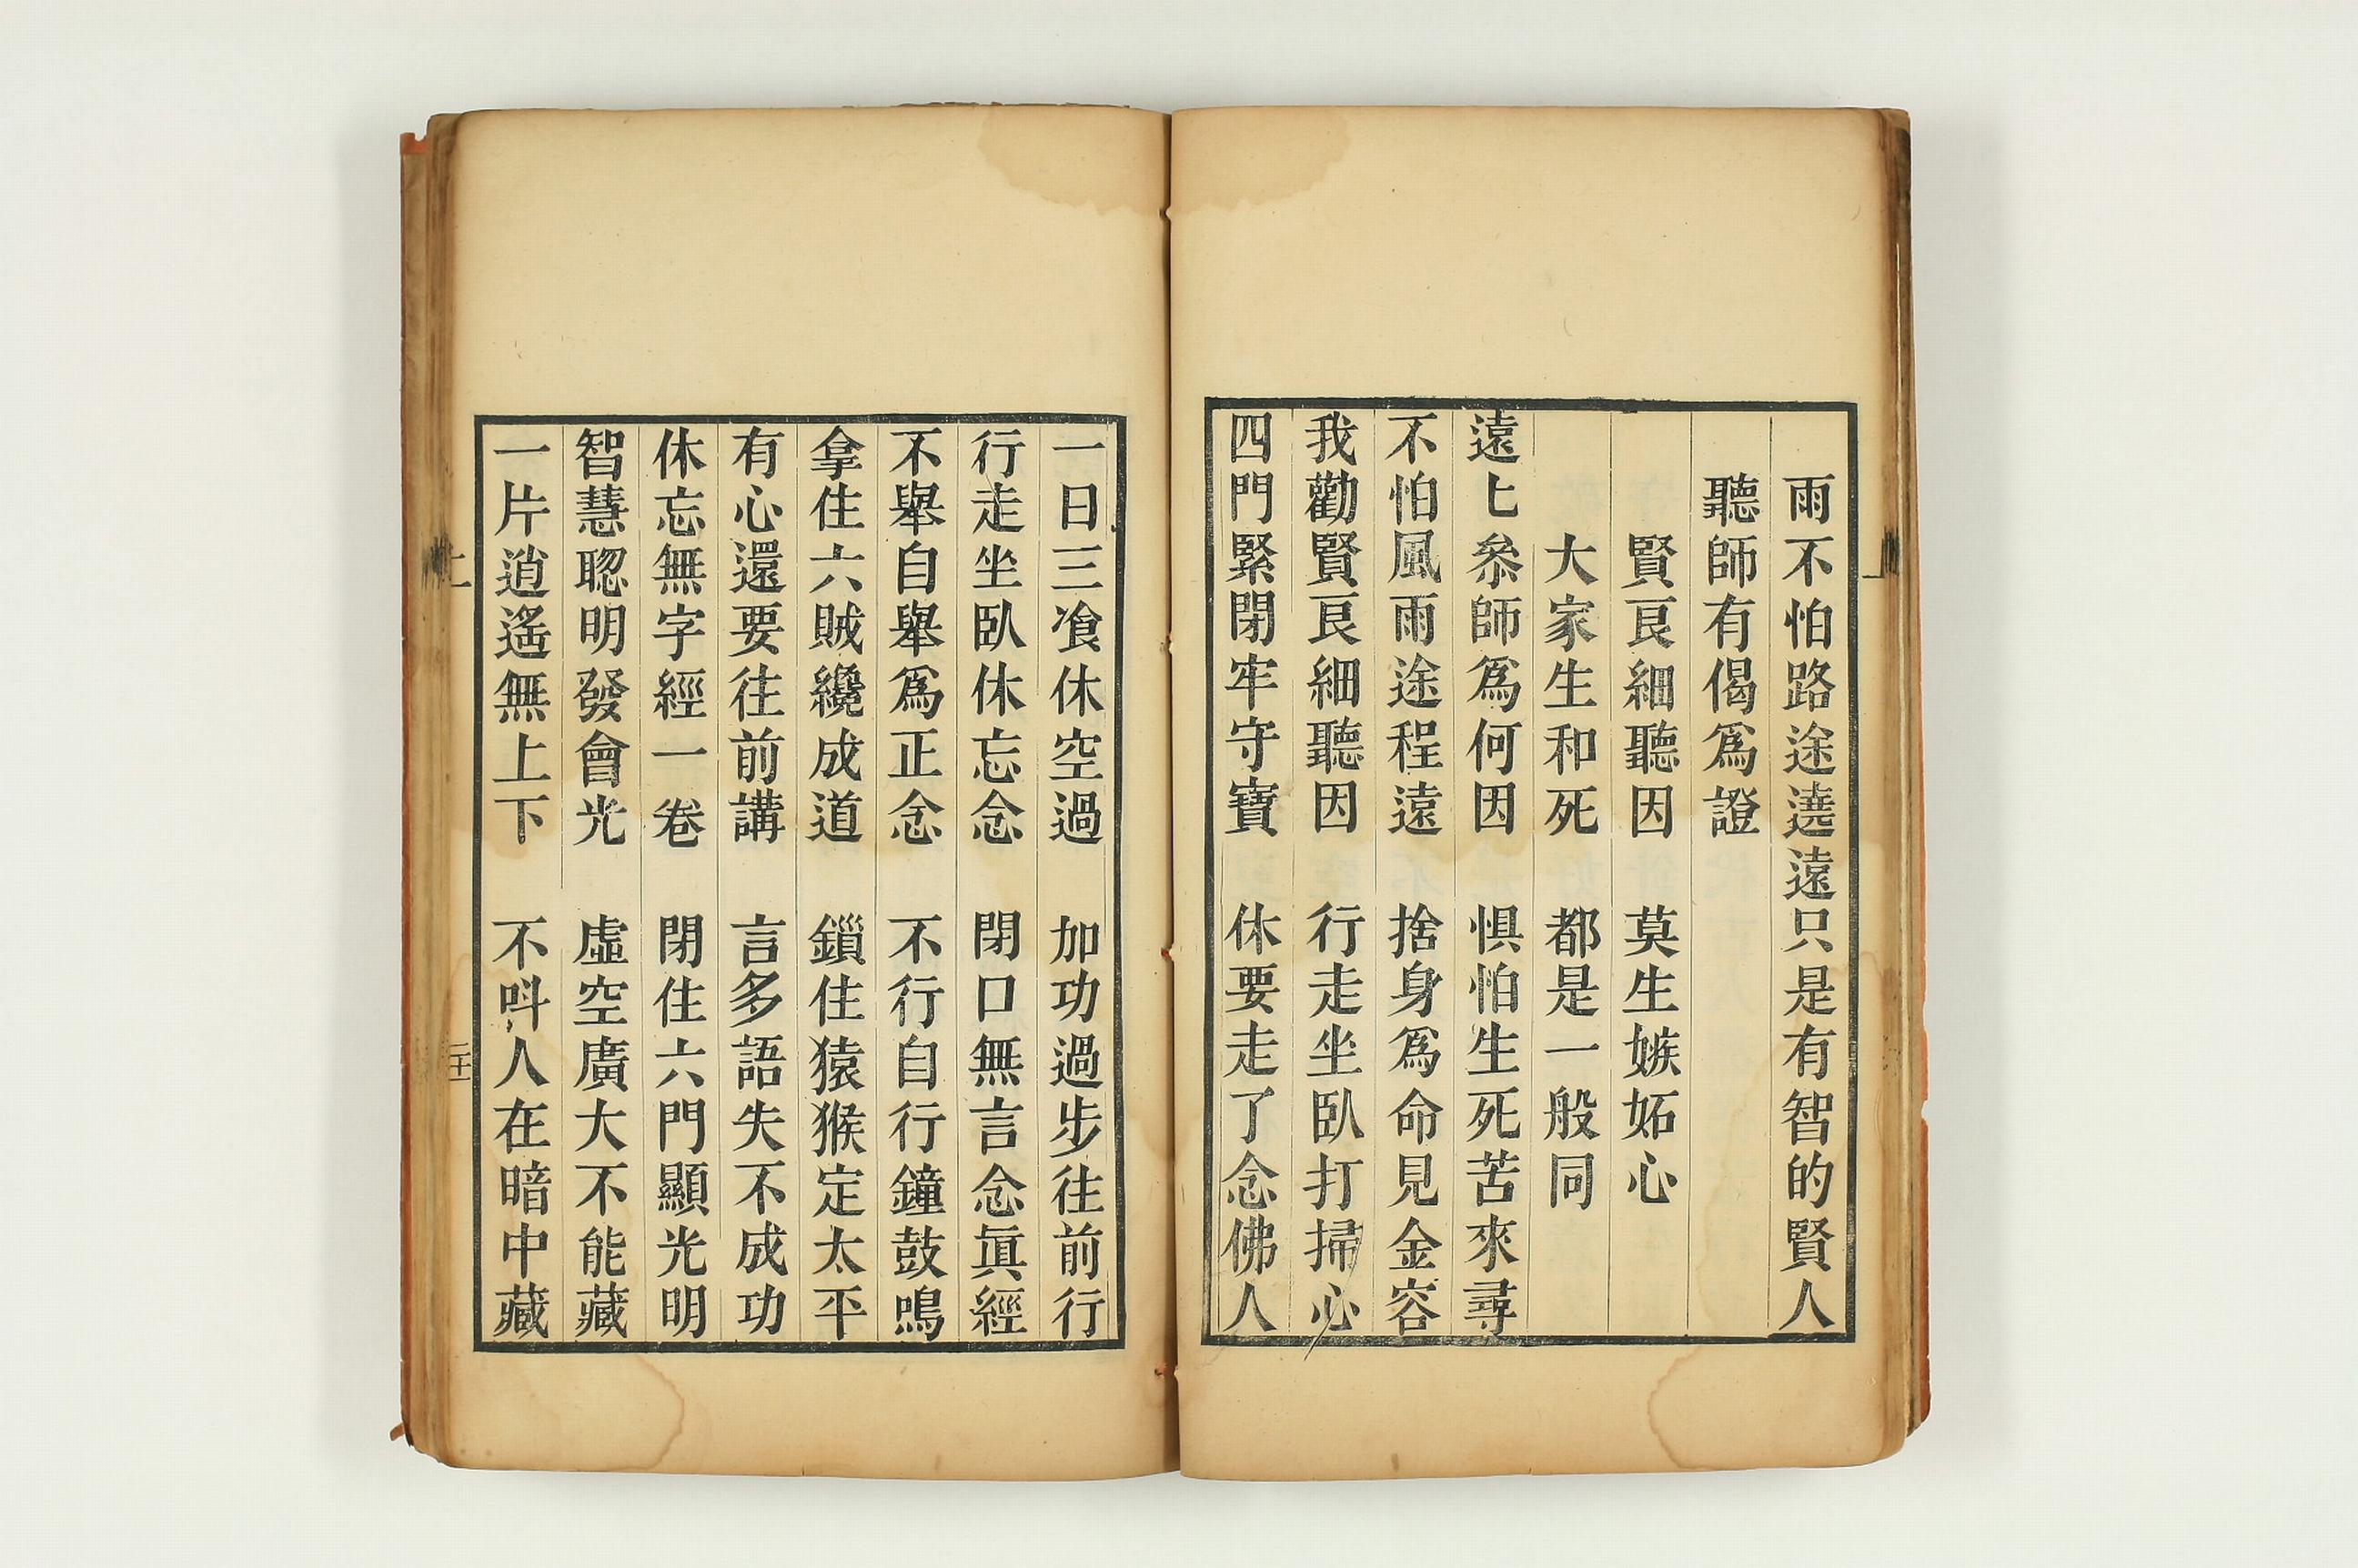 雨不怕路途遶遠只是有智的賢人
聽師有偈爲證
賢良細聽因　莫生嫉妬心
大家生和死　都是一般同
遠匕叅師爲何因　惧怕生死苦來尋
不怕風雨途程遠　捨身爲命見金容
我勸賢良細聽因　行走坐臥打掃心
四門緊閉牢守寶　休要走了念佛人
一日三飡休空過　加功過步往前行
行走坐臥休忘念　閉口無言念眞經
不舉自舉爲正念　不行自行鐘鼓鳴
拿住六賊纔成道　鎻住猿猴定太平
有心還要往前講　言多語失不成功
休忘無字經一卷　閉住六門顯光明
智慧聦明發會光　虛空廣大不能藏
一片逍遙無上下　不呌人在暗中藏